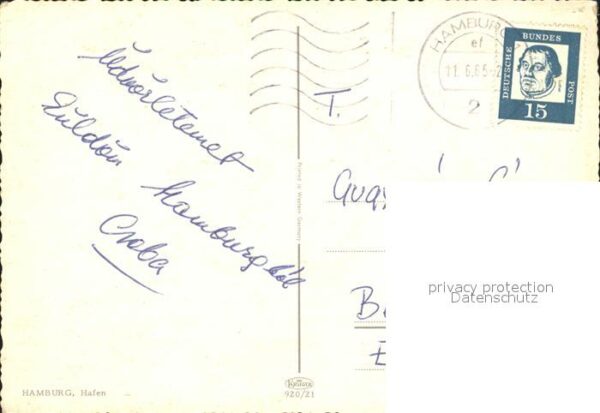 Üdvözletemet
Küldöm
Hamburgból
Csaba
HAMBURG
ef
11.6.65-2
2
DEUTSCHE
BUNDES
POST
15
T.
Printed in Western Germany
privacy protection
Datenschutz
HAMBURG, Hafen
920/21